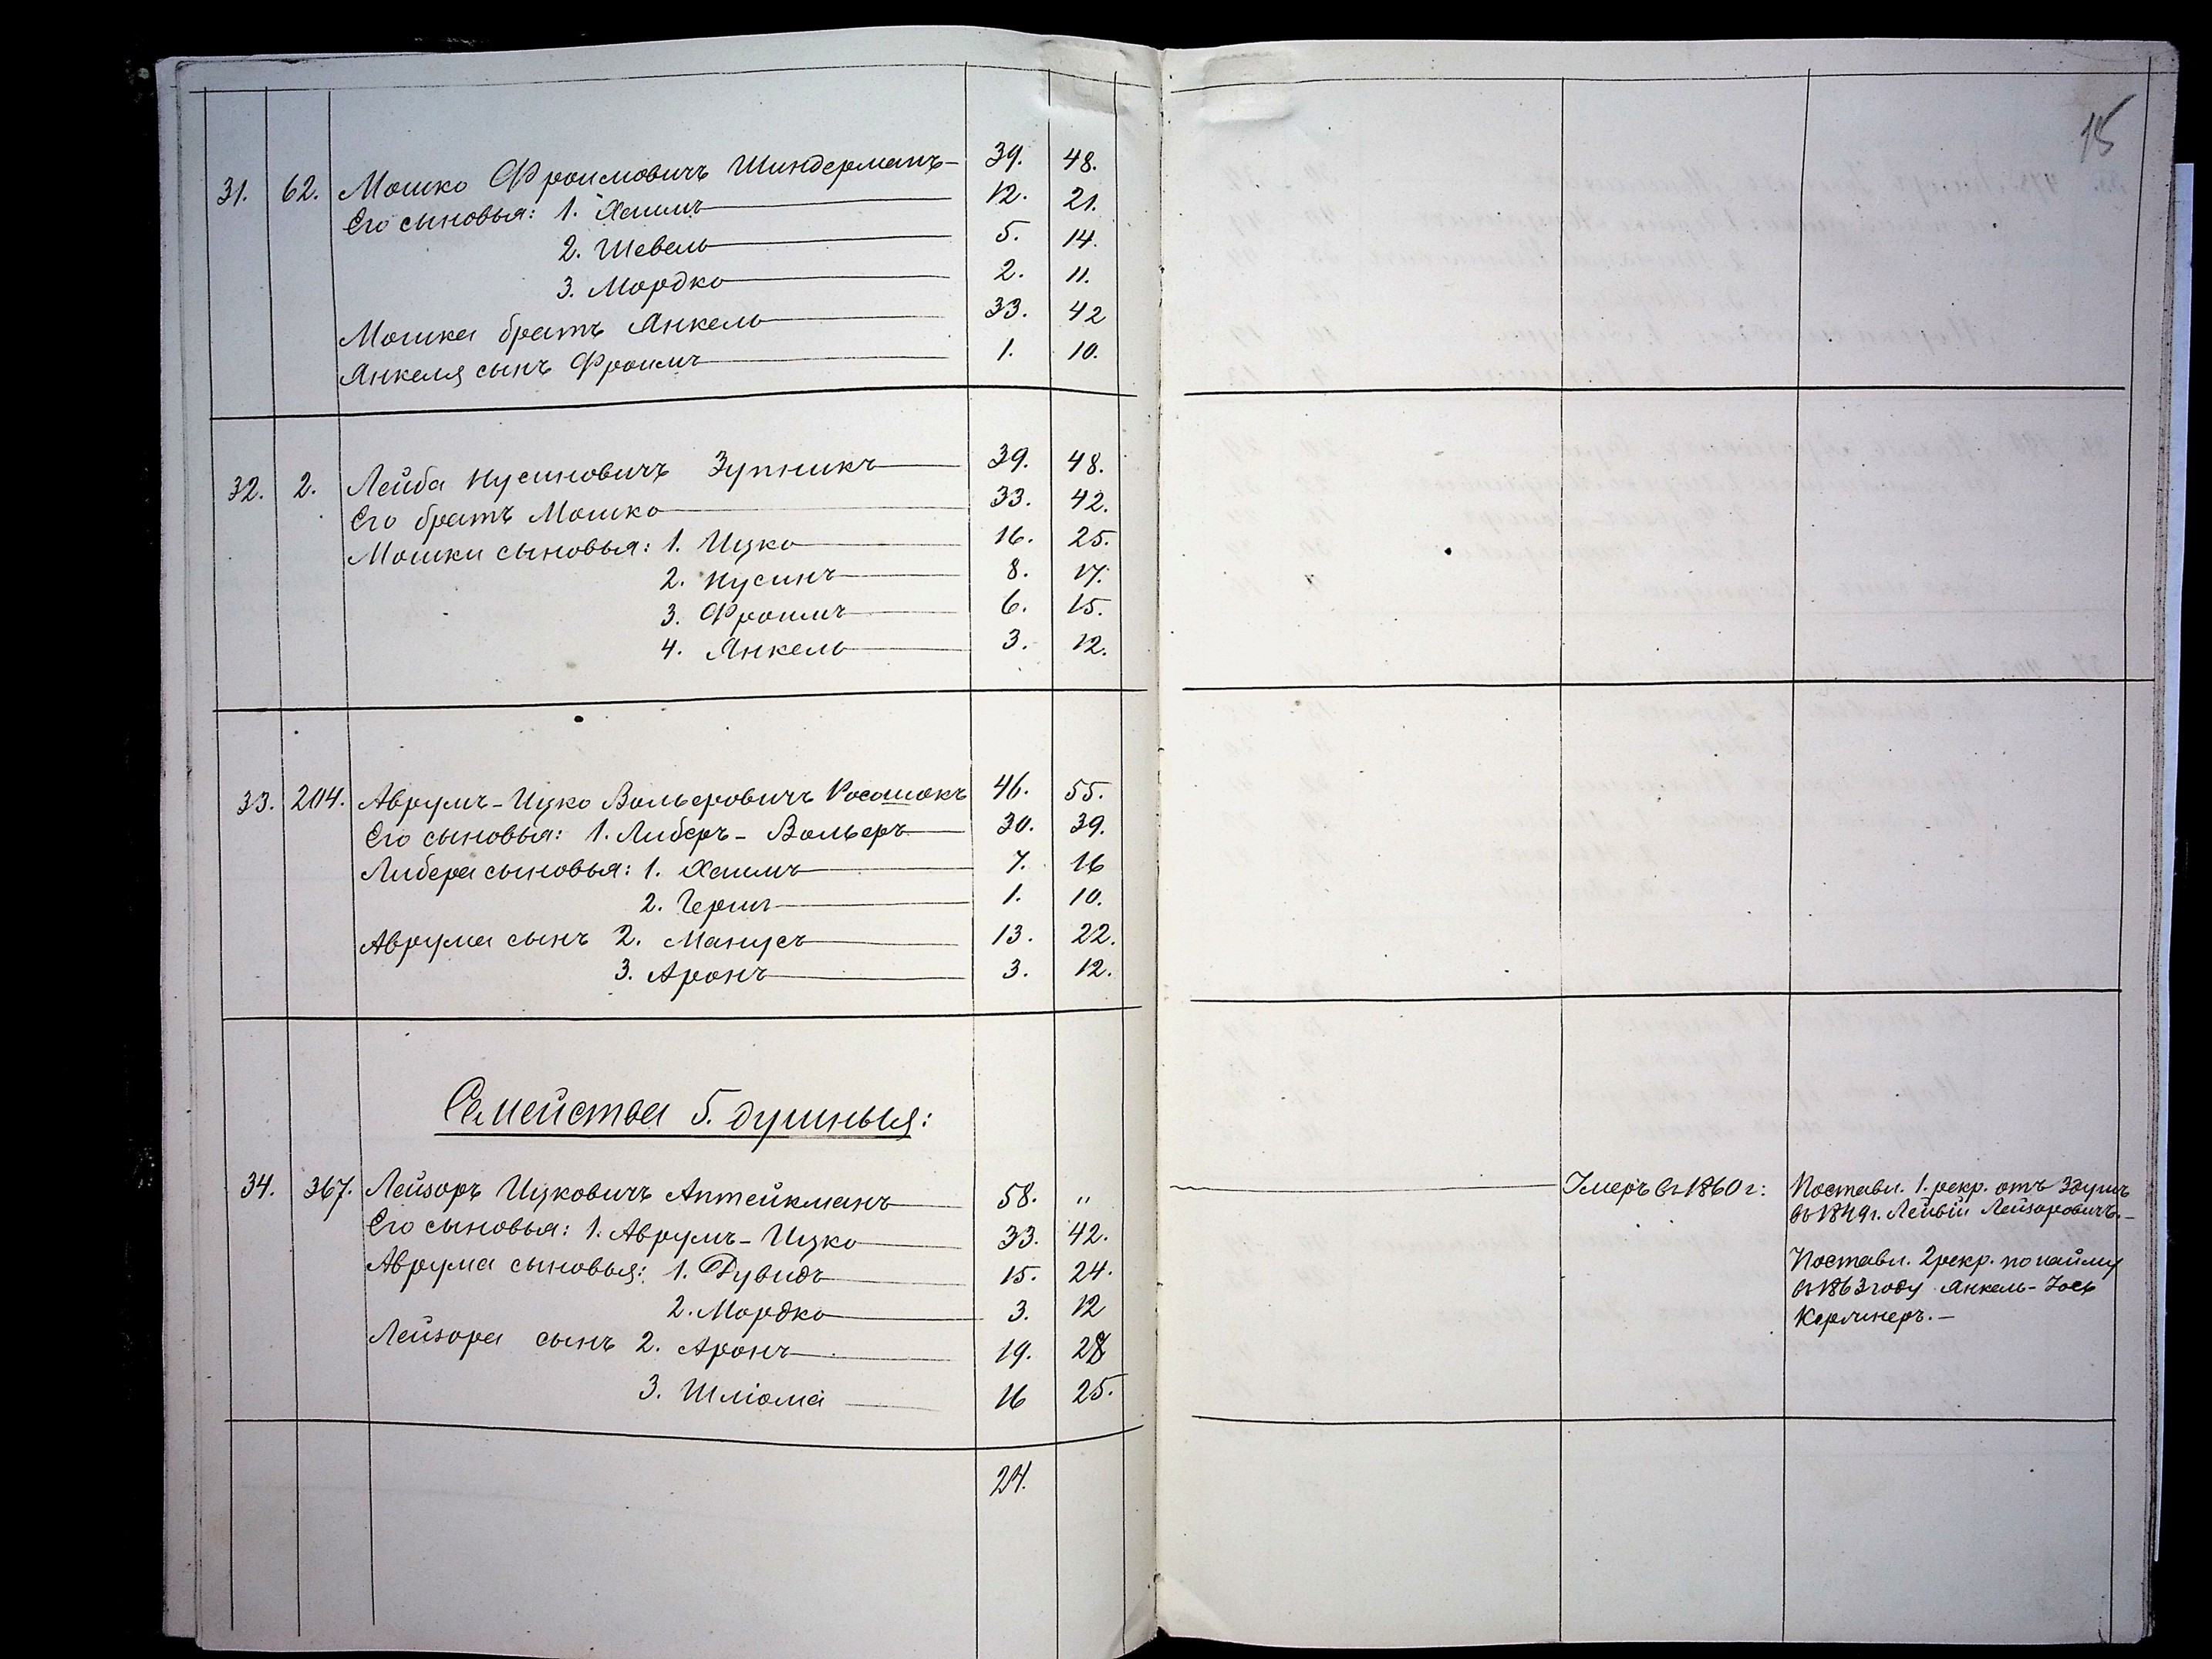 15
31. 62. Мошко Фроимовичъ Шиндерманъ 39. 48.
Его сыновья: 1. Хаимъ 12. 21.
2. Шевель 5. 14.
3. Мордко 2. 11.
Мошка братъ Янкель 33. 42
Янкеля сынъ Фроимъ 1. 10.
32. 2. Лейба Нусиновичъ Зупникъ 39. 48.
Его братъ Мошко 33. 42.
Мошки сыновья: 1. Ицко 16. 25.
2. Нусинъ 8. 17.
3. Фроимъ 6. 15.
4. Янкель 3. 12.
33. 204. Аврумъ-Ицко Вольферовичъ Косошокъ 46. 55.
Его сыновья: 1. Либеръ-Вольферъ 30. 39.
Либера сыновья: 1. Хаимъ 7. 16
2. Гершъ 1. 10.
Аврума сынъ 2. Манусъ 13. 22.
3. Аронъ 3. 12.
Семейства 5. душныя:
34. 367. Лейзоръ Ицковичъ Аптейкманъ 58. „ Умеръ въ 1860 г: Поставл. 1. рекр. отъ 3душъ
въ 1849г. Лейбій Лейзоровичъ.–
Его сыновья: 1. Аврумъ-Ицко 33. 42.
Аврума сыновья: 1. Дувидъ 15. 24. Поставл. 2рекр. по найму
въ 1863 году Янкель-Іось
2. Мордко 3. 12
Керчнеръ.–
Лейзора сынъ 2. Аронъ 19. 28
3. Шліома 16 25.
24.